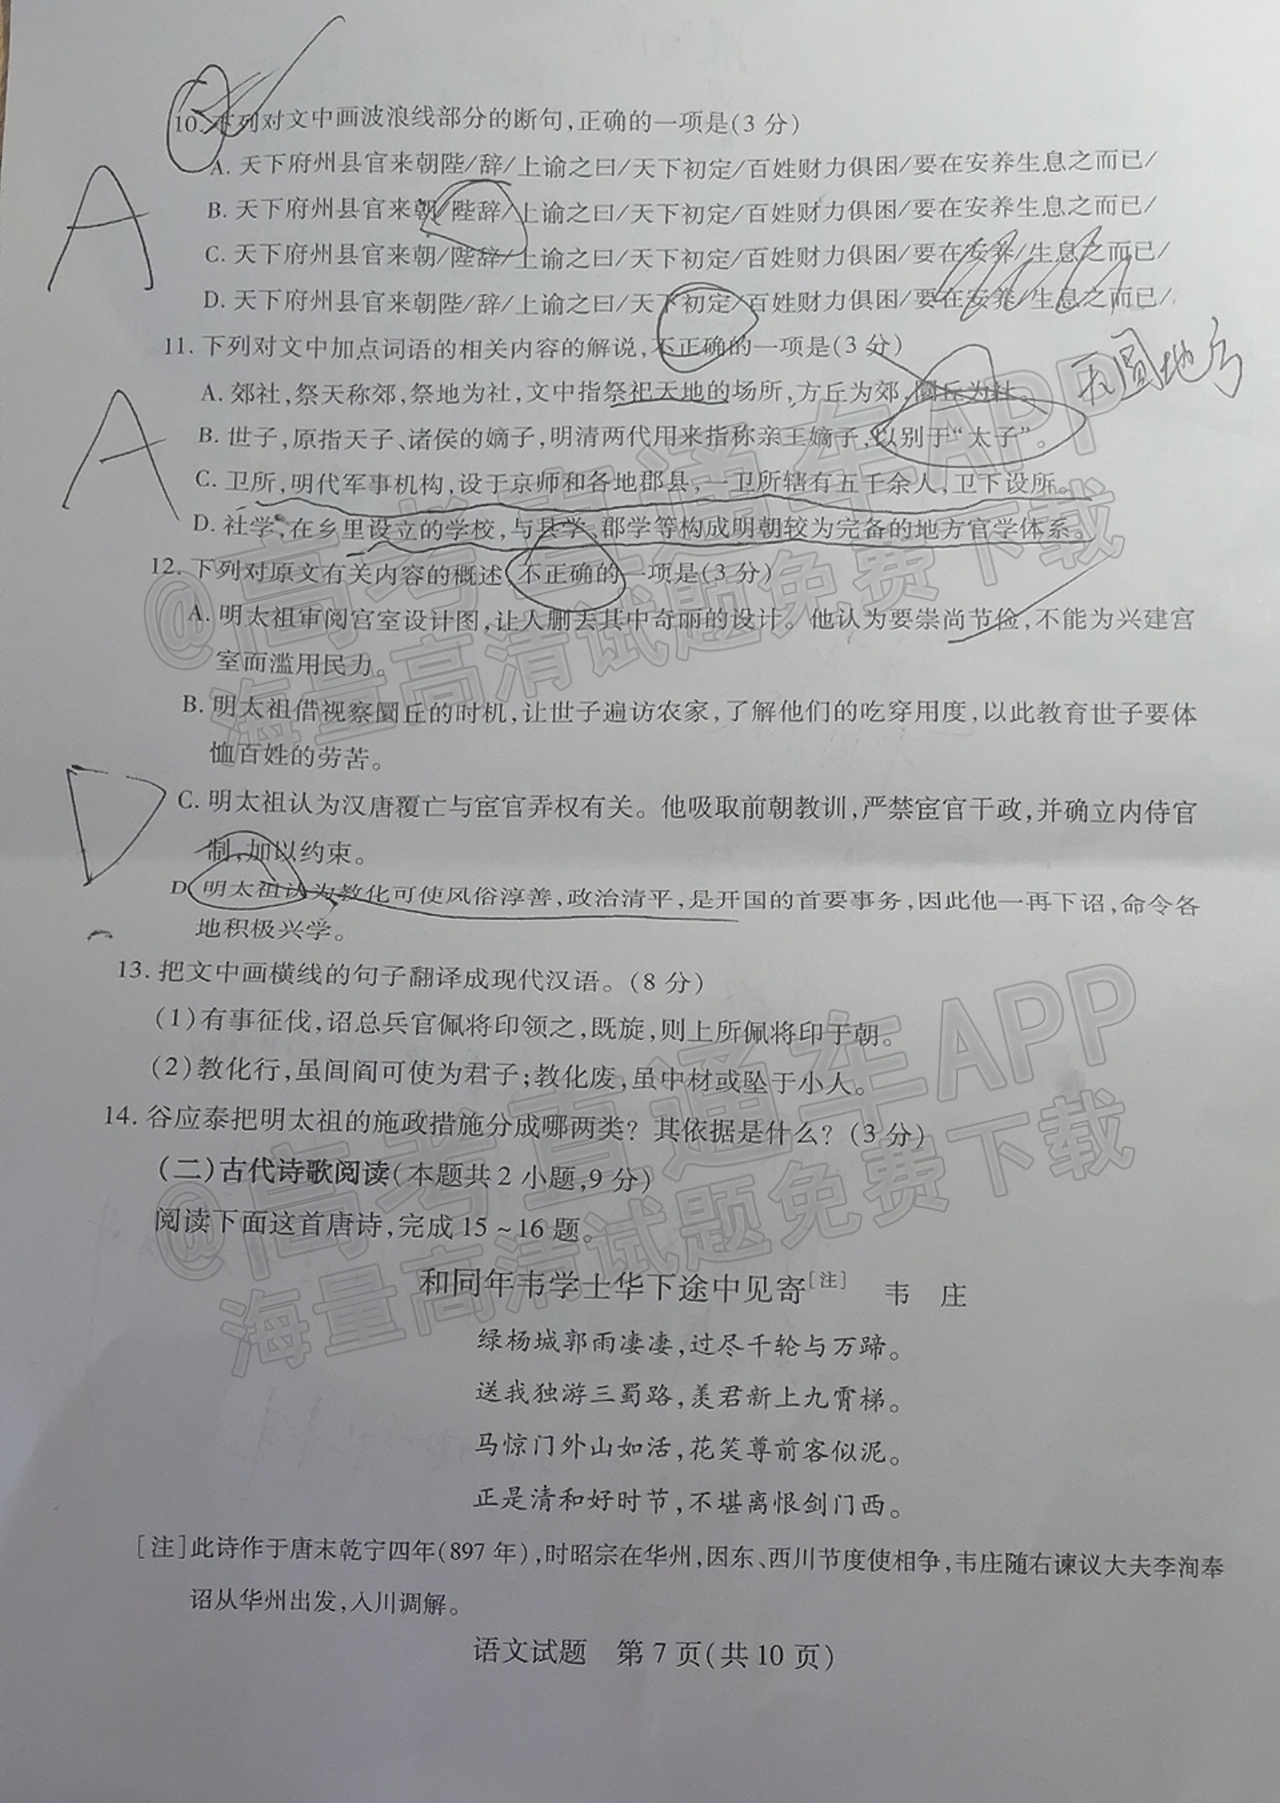 10. 下列对文中画波浪线部分的断句,正确的一项是(3分)
A. 天下府州县官来朝陛/辞/上谕之曰/天下初定/百姓财力俱困/要在安养生息之而已/
B. 天下府州县官来朝/陛辞/上谕之曰/天下初定/百姓财力俱困/要在安养生息之而已/
C. 天下府州县官来朝/陛辞/上谕之曰/天下初定/百姓财力俱困/要在安养/生息之而已/
D. 天下府州县官来朝陛/辞/上谕之曰/天下初定/百姓财力俱困/要在安养/生息之而已/
A
11. 下列对文中加点词语的相关内容的解说,不正确的一项是(3分)
天圆地方
A. 郊社,祭天称郊,祭地为社,文中指祭祀天地的场所,方丘为郊,圜丘为社。
B. 世子,原指天子、诸侯的嫡子,明清两代用来指称亲王嫡子,以别于“太子”。
A
C. 卫所,明代军事机构,设于京师和各地郡县,一卫所辖有五千余人,卫下设所。
D. 社学,在乡里设立的学校,与县学、郡学等构成明朝较为完备的地方官学体系。
12. 下列对原文有关内容的概述,不正确的一项是(3分)
A. 明太祖审阅宫室设计图,让人删去其中奇丽的设计。他认为要崇尚节俭,不能为兴建宫
室而滥用民力。
B. 明太祖借视察圜丘的时机,让世子遍访农家,了解他们的吃穿用度,以此教育世子要体
恤百姓的劳苦。
D
C. 明太祖认为汉唐覆亡与宦官弄权有关。他吸取前朝教训,严禁宦官干政,并确立内侍官
制,加以约束。
D. 明太祖认为教化可使风俗淳善,政治清平,是开国的首要事务,因此他一再下诏,命令各
地积极兴学。
13. 把文中画横线的句子翻译成现代汉语。(8分)
(1)有事征伐,诏总兵官佩将印领之,既旋,则上所佩将印于朝。
(2)教化行,虽闾阎可使为君子;教化废,虽中材或坠于小人。
14. 谷应泰把明太祖的施政措施分成哪两类?其依据是什么?(3分)
(二)古代诗歌阅读(本题共2小题,9分)
阅读下面这首唐诗,完成15~16题。
和同年韦学士华下途中见寄[注] 韦 庄
绿杨城郭雨凄凄,过尽千轮与万蹄。
送我独游三蜀路,羡君新上九霄梯。
马惊门外山如活,花笑尊前客似泥。
正是清和好时节,不堪离恨剑门西。
[注]此诗作于唐末乾宁四年(897年),时昭宗在华州,因东、西川节度使相争,韦庄随右谏议大夫李洵奉
诏从华州出发,入川调解。
语文试题 第7页(共10页)
@高考直通车APP
海量高清试题免费下载
@高考直通车APP
海量高清试题免费下载